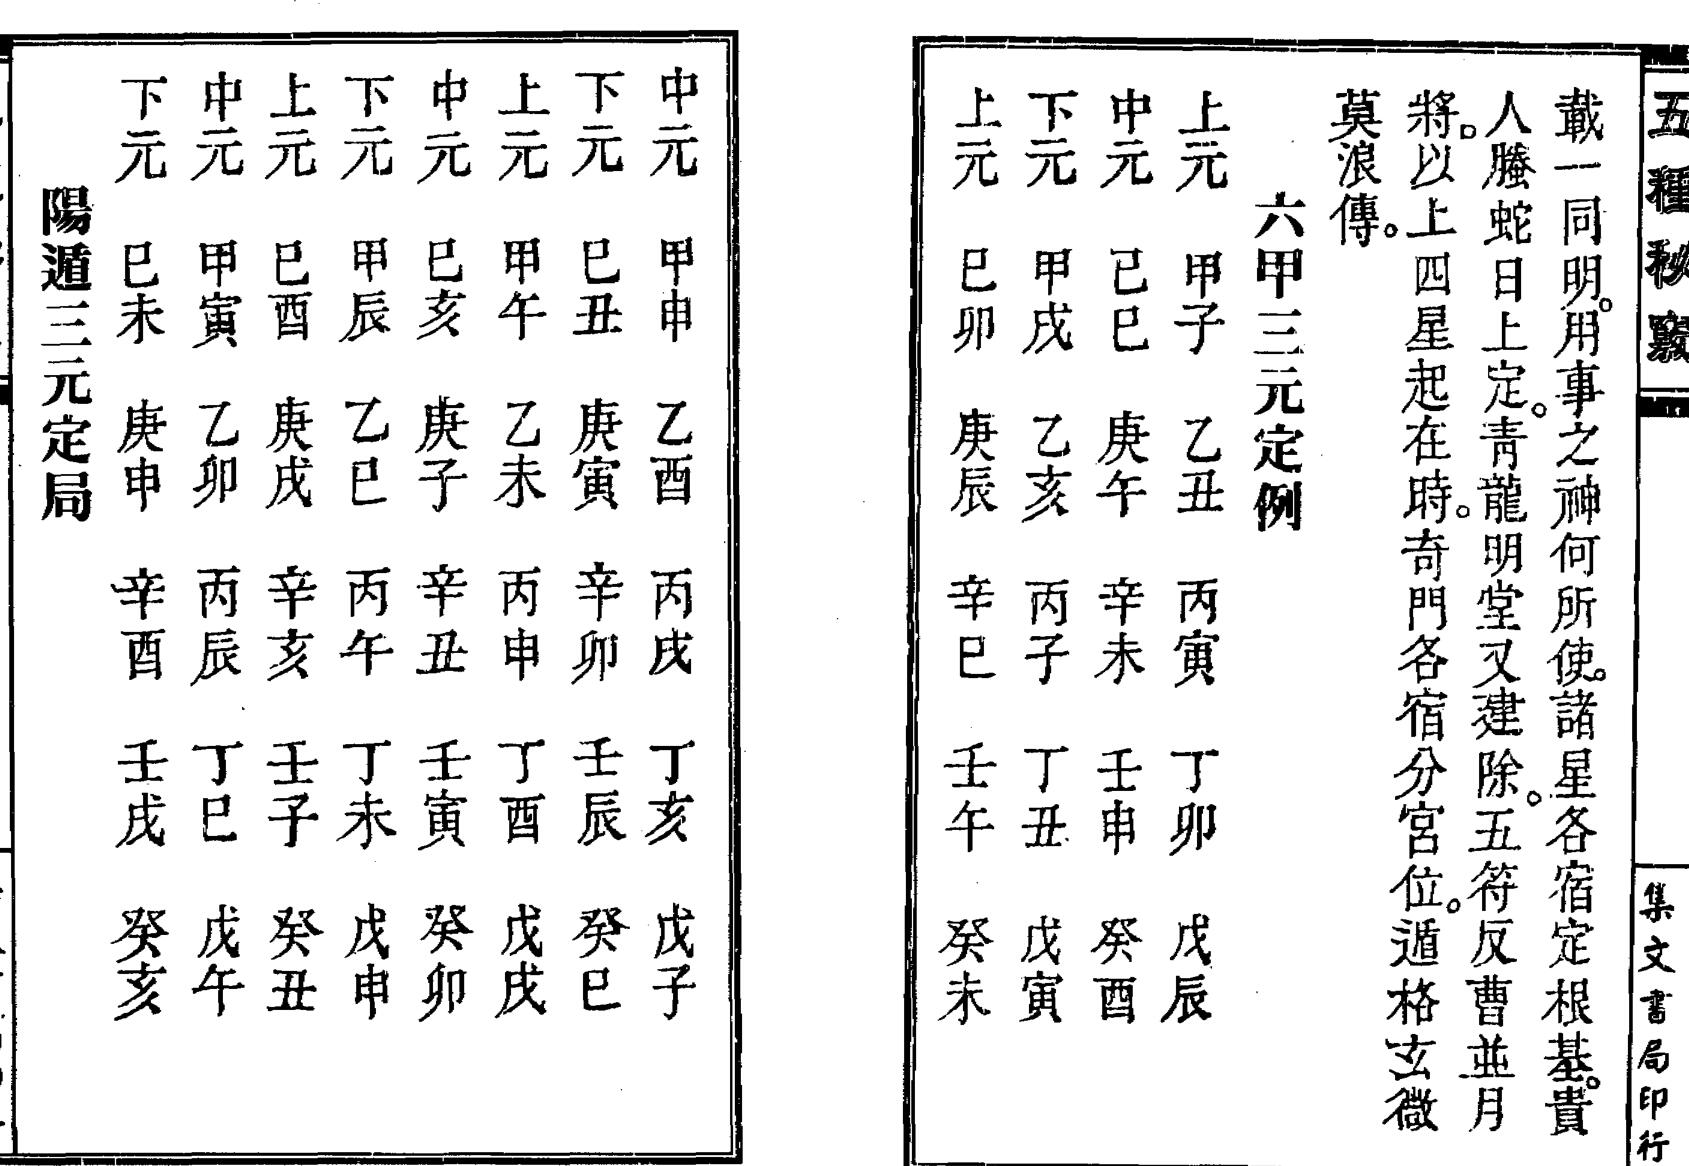 五種秘竅
集文書局印行
載一同明。用事之神何所使。諸星各宿定根基。貴
人螣蛇日上定。青龍明堂又建除。五符反曹並月
將。以上四星起在時。奇門各宿分宮位。遁格玄微
莫浪傳。
六甲三元定例
上元 甲子 乙丑 丙寅 丁卯 戊辰
中元 己巳 庚午 辛未 壬申 癸酉
下元 甲戌 乙亥 丙子 丁丑 戊寅
上元 巳卯 庚辰 辛巳 壬午 癸未
中元 甲申 乙酉 丙戌 丁亥 戊子
下元 巳丑 庚寅 辛卯 壬辰 癸巳
上元 甲午 乙未 丙申 丁酉 戊戌
中元 巳亥 庚子 辛丑 壬寅 癸卯
下元 甲辰 乙巳 丙午 丁未 戊申
上元 巳酉 庚戌 辛亥 壬子 癸丑
中元 甲寅 乙卯 丙辰 丁巳 戊午
下元 巳未 庚申 辛酉 壬戌 癸亥
陽遁三元定局